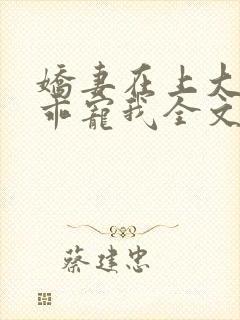 嬌妻在上大
乖寵我全文
蔡建忠